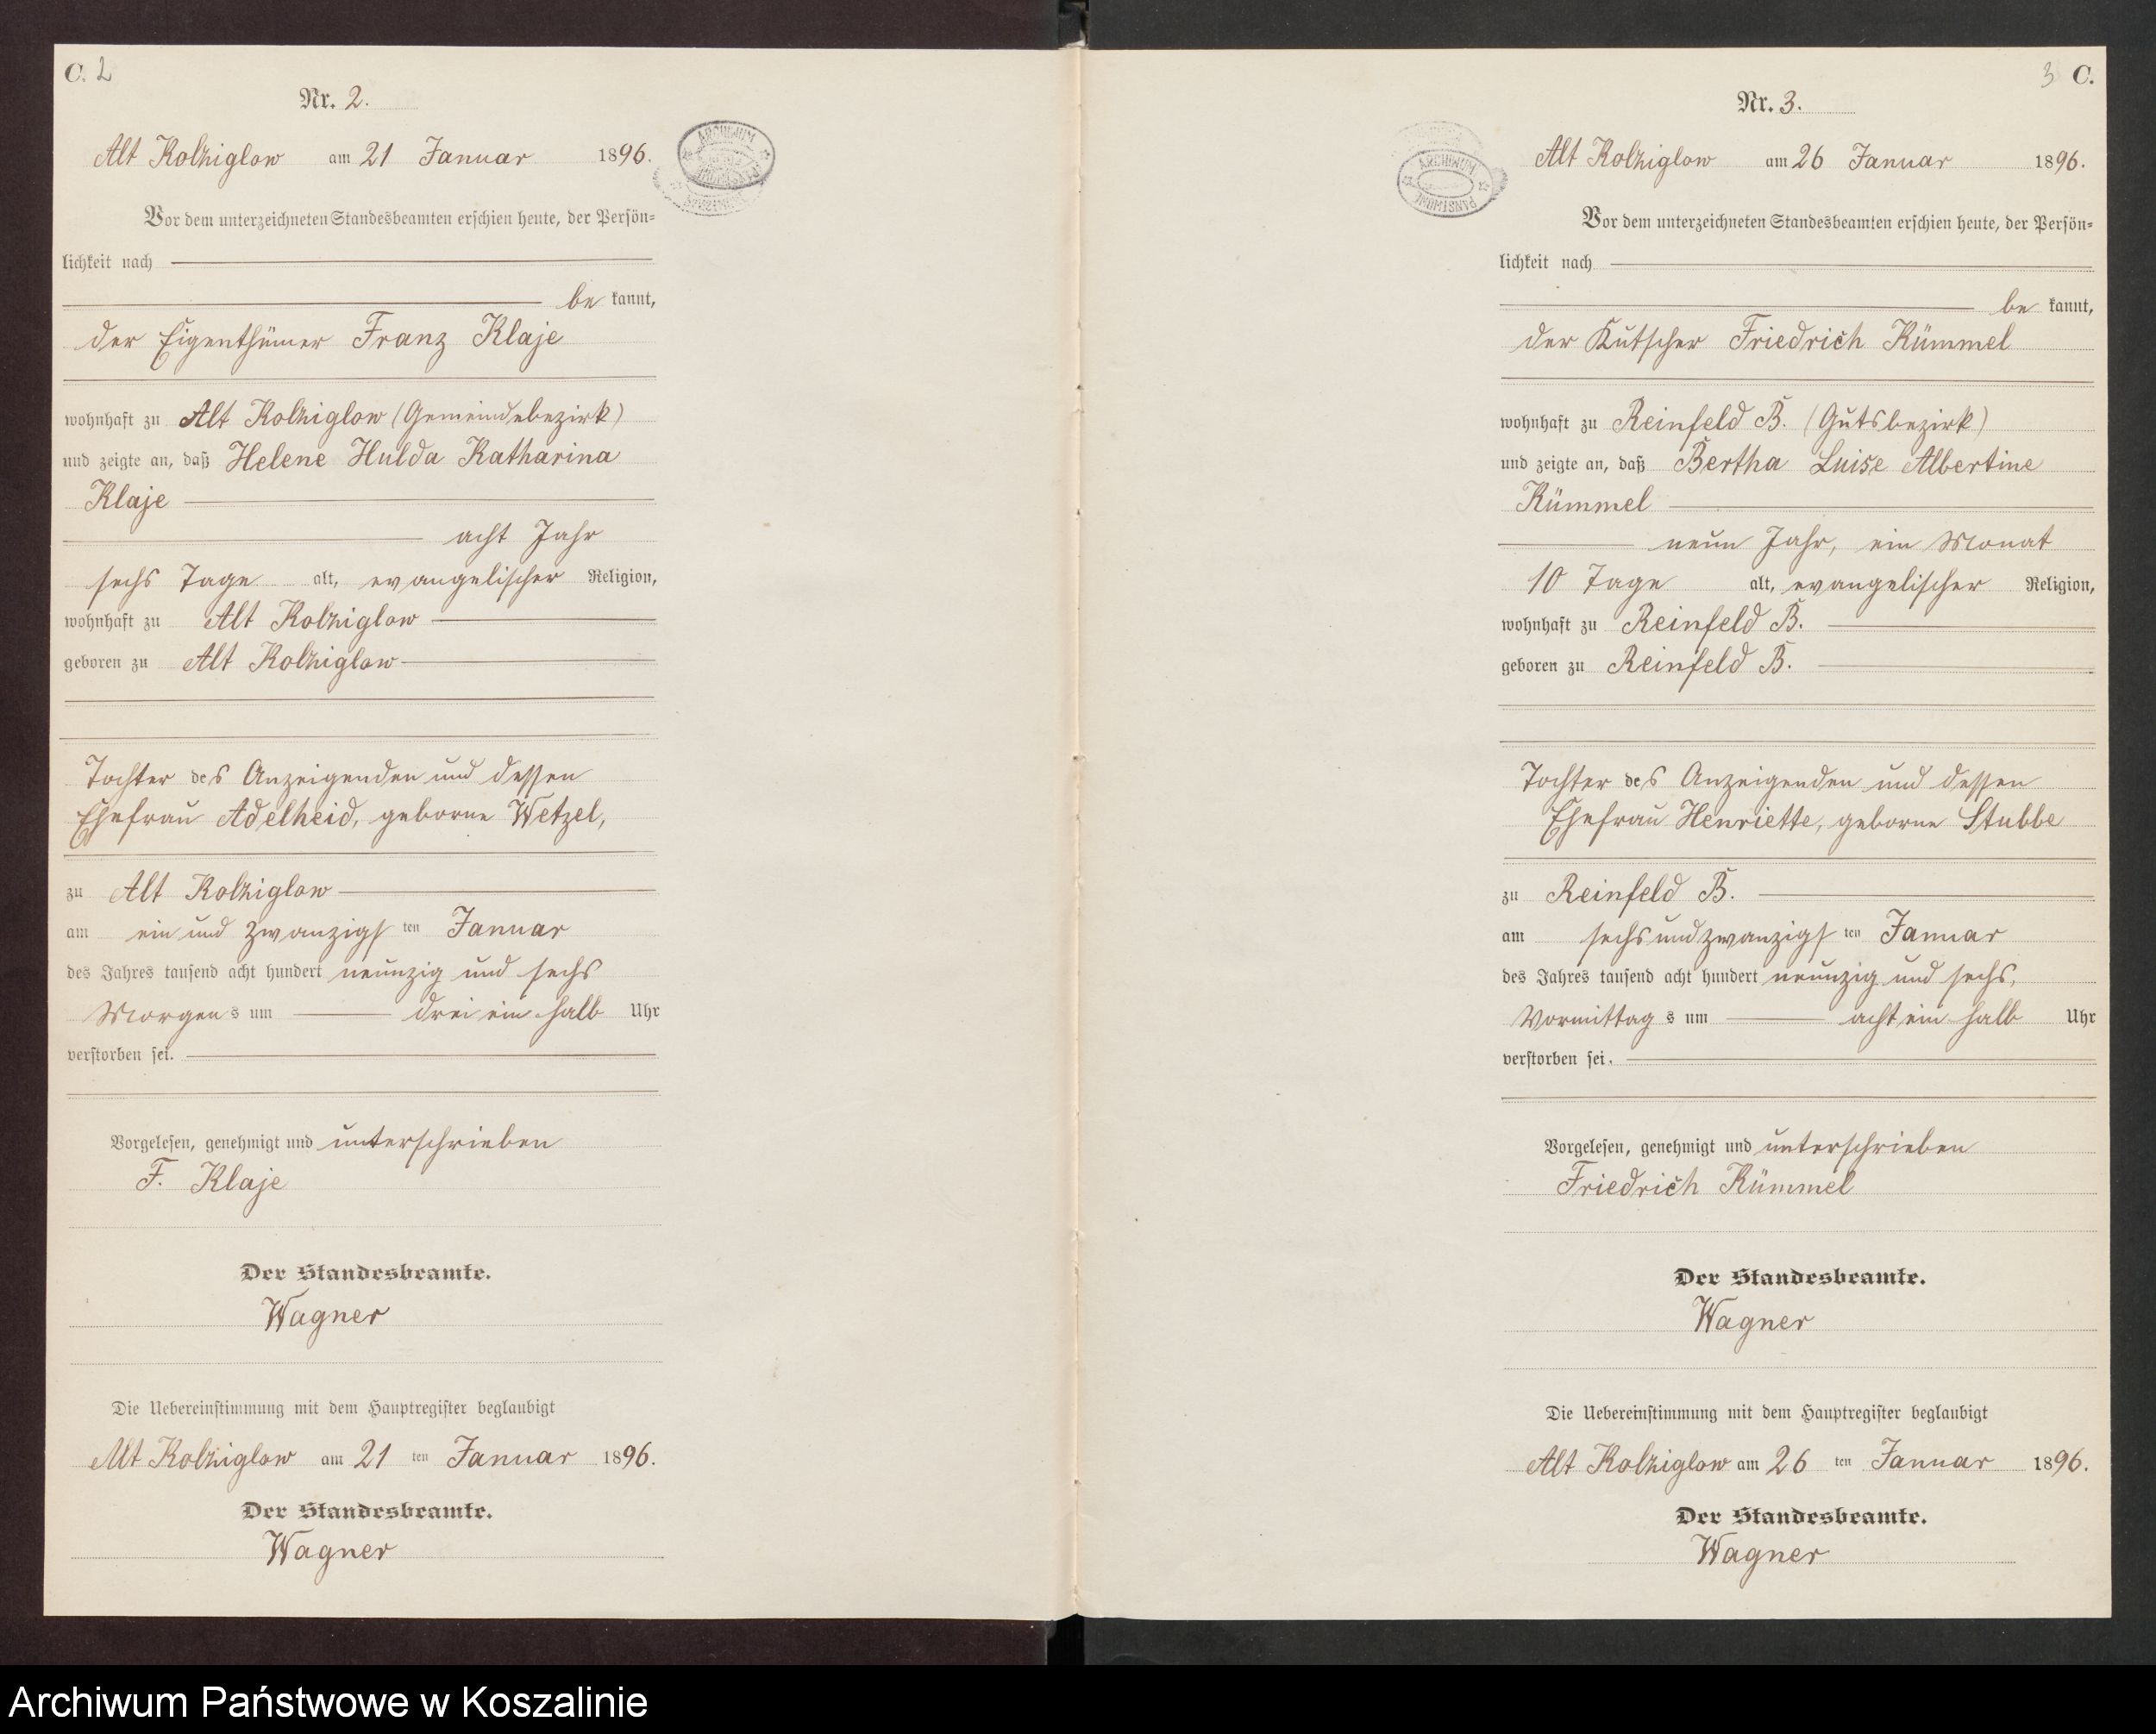 C. 2
Nr. 2.
Alt Kolziglow am 21 Januar 1896.
Vor dem unterzeichneten Standesbeamten erschien heute, der Persön=
lichkeit nach
be kannt,
der Eigenthümer Franz Klaje
wohnhaft zu Alt Kolziglow (Gemeindebezirk)
und zeigte an, daß Helene Hulda Katharina
Klaje
acht Jahr
sechs Tage alt, evangelischer Religion,
wohnhaft zu Alt Kolziglow
geboren zu Alt Kolziglow
Tochter des Anzeigenden und dessen
Ehefrau Adelheid, geborne Wetzel,
zu Alt Kolziglow
am ein und zwanzigsten Januar
des Jahres tausend acht hundert neunzig und sechs
Morgens um drei ein halb Uhr
verstorben sei.
Vorgelesen, genehmigt und unterschrieben
F. Klaje
Der Standesbeamte.
Wagner
Die Uebereinstimmung mit dem Hauptregister beglaubigt
Alt Kolziglow am 21 ten Januar 1896.
Der Standesbeamte.
Wagner
ARCHIWUM
3 C.
Nr. 3.
Alt Kolziglow am 26 Januar 1896.
Vor dem unterzeichneten Standesbeamten erschien heute, der Persön=
lichkeit nach
be kannt,
der Kutscher Friedrich Kümmel
wohnhaft zu Reinfeld B. (Gutsbezirk)
und zeigte an, daß Bertha Luise Albertine
Kümmel
neun Jahr, ein Monat
10 Tage alt, evangelischer Religion,
wohnhaft zu Reinfeld B.
geboren zu Reinfeld B.
Tochter des Anzeigenden und dessen
Ehefrau Henriette, geborne Stubbe
zu Reinfeld B.
am sechsundzwanzigsten Januar
des Jahres tausend acht hundert neunzig und sechs,
Vormittags um acht ein halb Uhr
verstorben sei.
Vorgelesen, genehmigt und unterschrieben
Friedrich Kümmel
Der Standesbeamte.
Wagner
Die Uebereinstimmung mit dem Hauptregister beglaubigt
Alt Kolziglow am 26 ten Januar 1896.
Der Standesbeamte.
Wagner
ARCHIWUM
PAŃSTWOWE
Archiwum Państwowe w Koszalinie